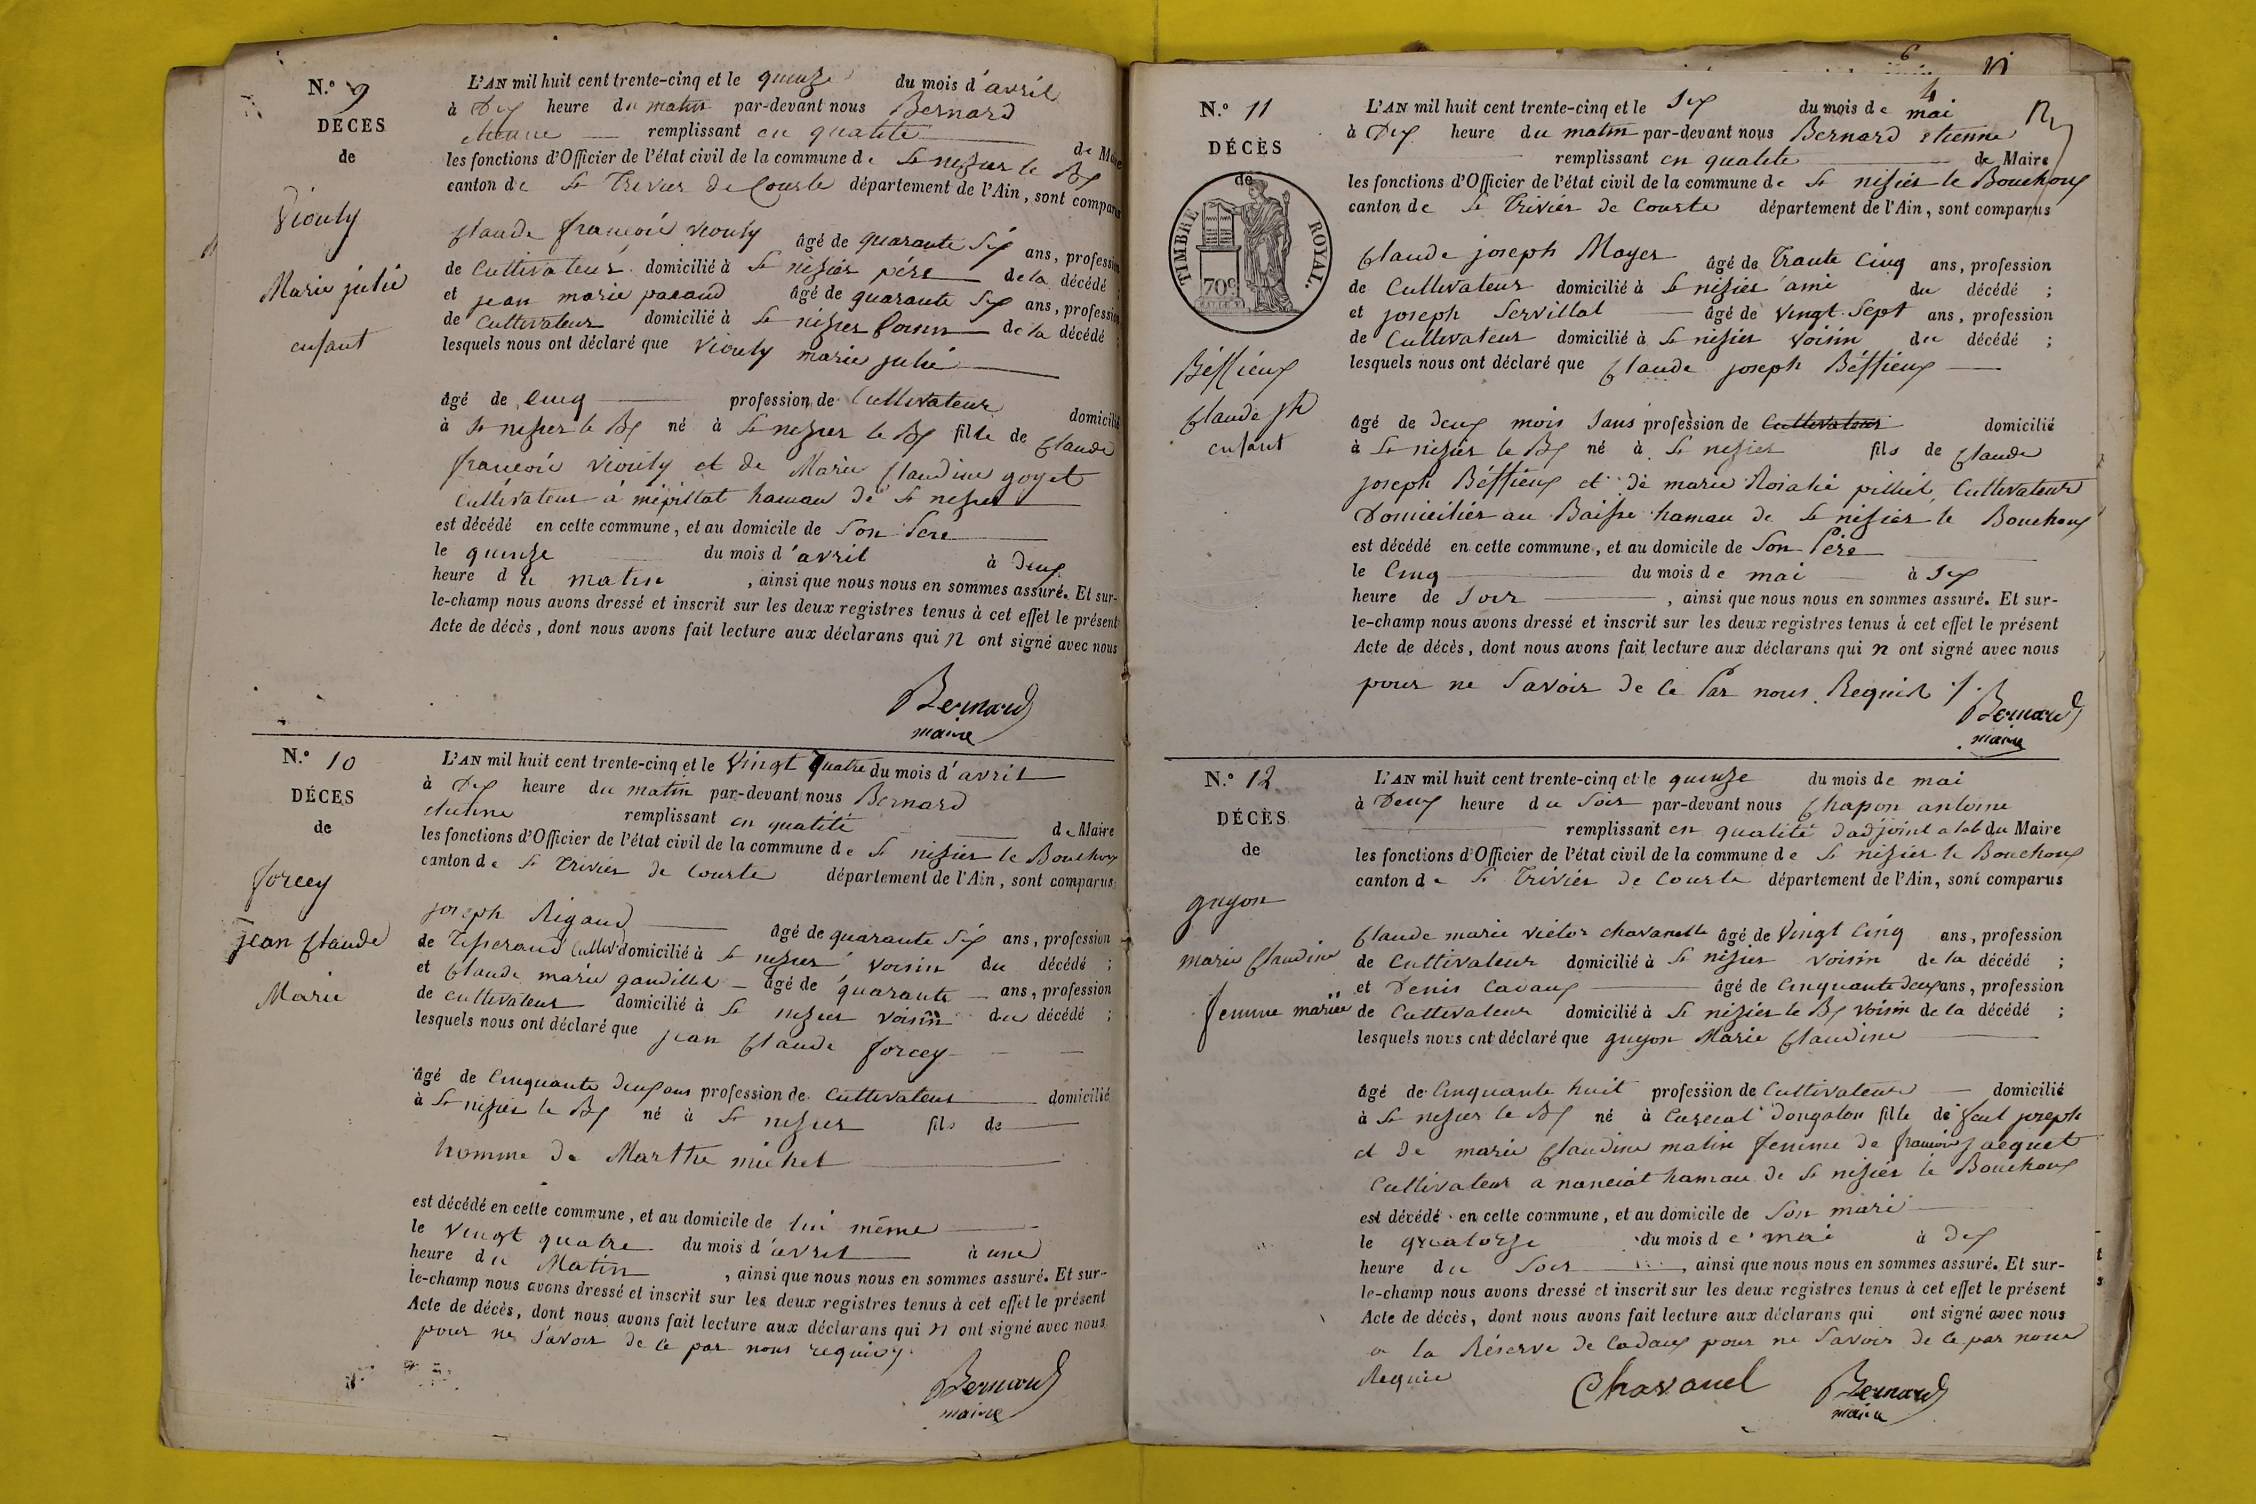 N.° 9
DÉCÈS
de
Viouly
Marie julié
enfant
L'AN mil huit cent trente-cinq et le quinze du mois d'avril
à Dix heure du matin par-devant nous Bernard
etienne remplissant en qualité de Maire
les fonctions d'Officier de l'état civil de la commune de St nizier le Bx
canton de St Trivier de Courte département de l'Ain, sont comparus
Claude françois viouly âgé de quarante Six ans, profession
de Cultivateur domicilié à St nizier père de la décédé ;
et jean marie pacaud âgé de quarante Six ans, profession
de Cultivateur domicilié à St nizier de la décédé ;
lesquels nous ont déclaré que viouly marie julié
âgé de Cinq profession de Cultivateur domicilié
à St nizier le Bx né à St nizier le Bx fille de Claude
françois viouly et de Marie Claudine goyet
Cultivateur à mépillat hameau de St nizier
est décédé en cette commune, et au domicile de Son Père
le quinze du mois d'avril à Deux
heure du matin , ainsi que nous nous en sommes assuré. Et sur-
le-champ nous avons dressé et inscrit sur les deux registres tenus à cet effet le présent
Acte de décès, dont nous avons fait lecture aux déclarans qui n ont signé avec nous
Bernard
maire
N.° 10
DÉCES
de
forcey
jean Claude
Marie
L'AN mil huit cent trente-cinq et le Vingt quatre du mois d'avril
à Dix heure du matin par-devant nous Bernard
etienne remplissant en qualité de Maire
les fonctions d'Officier de l'état civil de la commune de St nizier le Bouchoux
canton de St Trivier de Courte département de l'Ain, sont comparus
joseph Rigaud âgé de quarante Six ans, profession
de Tisserand Cultiv domicilié à St nizier voisin du décédé ;
et Claude marie gaudillet âgé de quarante ans, profession
de cultivateur domicilié à St nizier voisin du décédé ;
lesquels nous ont déclaré que jean Claude forcey
âgé de Cinquante deux ans profession de Cultivateur domicilié
à St nizier le Bx né à St nizier fils de
homme de Marthe michel
est décédé en cette commune, et au domicile de lui même
le vingt quatre du mois d'avril à une
heure du Matin , ainsi que nous nous en sommes assuré. Et sur-
le-champ nous avons dressé et inscrit sur les deux registres tenus à cet effet le présent
Acte de décès, dont nous avons fait lecture aux déclarans qui n ont signé avec nous
pour ne Savoir de ce par nous requis
Bernard
maire
6
4
N.° 11
DÉCÈS
de
TIMBRE ROYAL.
70 c
Béffieux
Claude jh
enfant
L'AN mil huit cent trente-cinq et le Six du mois de mai
à Dix heure du matin par-devant nous Bernard etienne
remplissant en qualité de Maire
les fonctions d'Officier de l'état civil de la commune de St nizier le Bouchoux
canton de St Trivier de Courte département de l'Ain, sont comparus
Claude joseph Mayer âgé de Trante Cinq ans, profession
de Cultivateur domicilié à St nizier ami du décédé ;
et joseph Servillat âgé de vingt Sept ans, profession
de Cultivateur domicilié à St nizier voisin du décédé ;
lesquels nous ont déclaré que Claude joseph Béffieux
âgé de deux mois Sans profession de Cultivateur domicilié
à St nizier le Bx né à St nizier fils de Claude
joseph Béffieux et de marie Rosalie pilliet, Cultivateur
Domiciliés au Baisse hameau de St nizier le Bouchoux
est décédé en cette commune, et au domicile de Son Père
le Cinq du mois de mai à Six
heure de Soir , ainsi que nous nous en sommes assuré. Et sur-
le-champ nous avons dressé et inscrit sur les deux registres tenus à cet effet le présent
Acte de décès, dont nous avons fait lecture aux déclarans qui n ont signé avec nous
pour ne Savoir de ce Par nous Requis
Bernard
maire
N.° 12
DÉCÈS
de
guyon
marie Claudine
femme mariée
L'AN mil huit cent trente-cinq et le quinze du mois de mai
à Deux heure du Soir par-devant nous Chapon antoine
remplissant en qualité dadjoint du Maire
les fonctions d'Officier de l'état civil de la commune de St nizier le Bouchoux
canton de St Trivier de Courte département de l'Ain, sont comparus
Claude marie victor chavanelle âgé de Vingt Cinq ans, profession
de Cultivateur domicilié à St nizier voisin de la décédé ;
et Denis Cadaux âgé de Cinquante deux ans, profession
de Cultivateur domicilié à St nizier le Bx voisin de la décédé ;
lesquels nous ont déclaré que guyon Marie Claudine
âgé de Cinquante huit profession de Cultivateur domicilié
à St nizier le Bx né à Curciat Dongalon fille de feut joseph
et de marie Claudine matin femme de françois jacquet
Cultivateur a nanciat hameau de St nizier le Bouchoux
est décédé en cette commune, et au domicile de Son mari
le quatorze du mois de mai à dix
heure du Soir , ainsi que nous nous en sommes assuré. Et sur-
le-champ nous avons dressé et inscrit sur les deux registres tenus à cet effet le présent
Acte de décès, dont nous avons fait lecture aux déclarans qui ont signé avec nous
a la Réserve de Cadaux pour ne Savoir de ce par nous
Requis
Chavanel
Bernard
maire